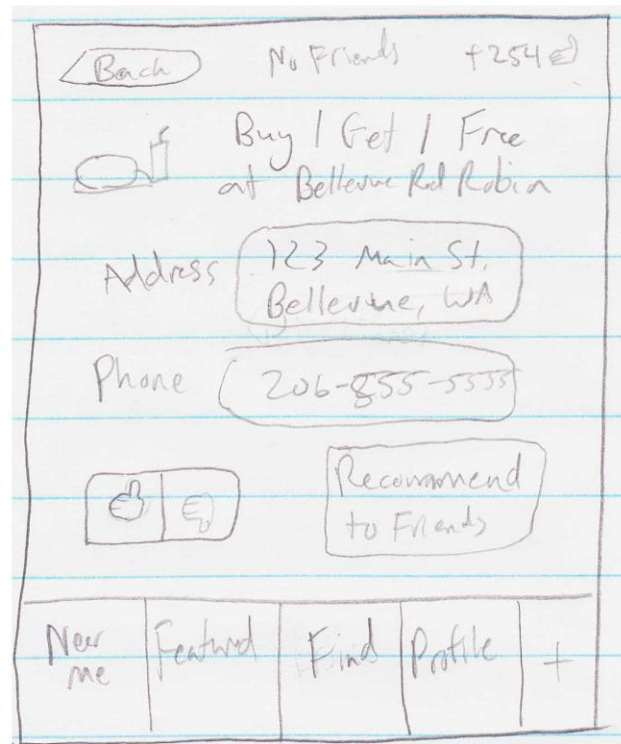 Back No Friends +254
Buy 1 Get 1 Free
at Bellevue Red Robin
Address 123 Main St.
Bellevue, WA
Phone 206-855-5555
Recommend
to Friends
Near me Featured Find Profile +